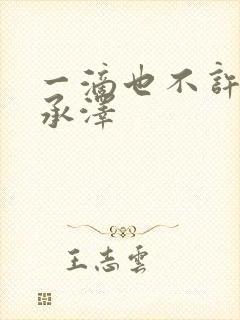 一滴也不許
承澤
王志雲